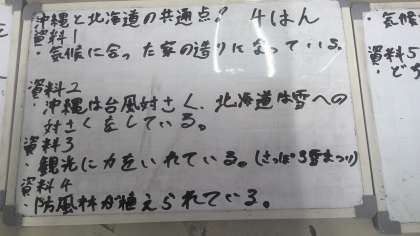 沖縄と北海道の共通点? 4はん
資料1
・気候に合った家の造りになっている。
資料2
・沖縄は台風対さく、北海道は雪への
対さくをしている。
資料3
観光に力をいれている。(さっぽろ雪まつり)
資料4
・防風林が植えられている。
・気候
資料5
・ど